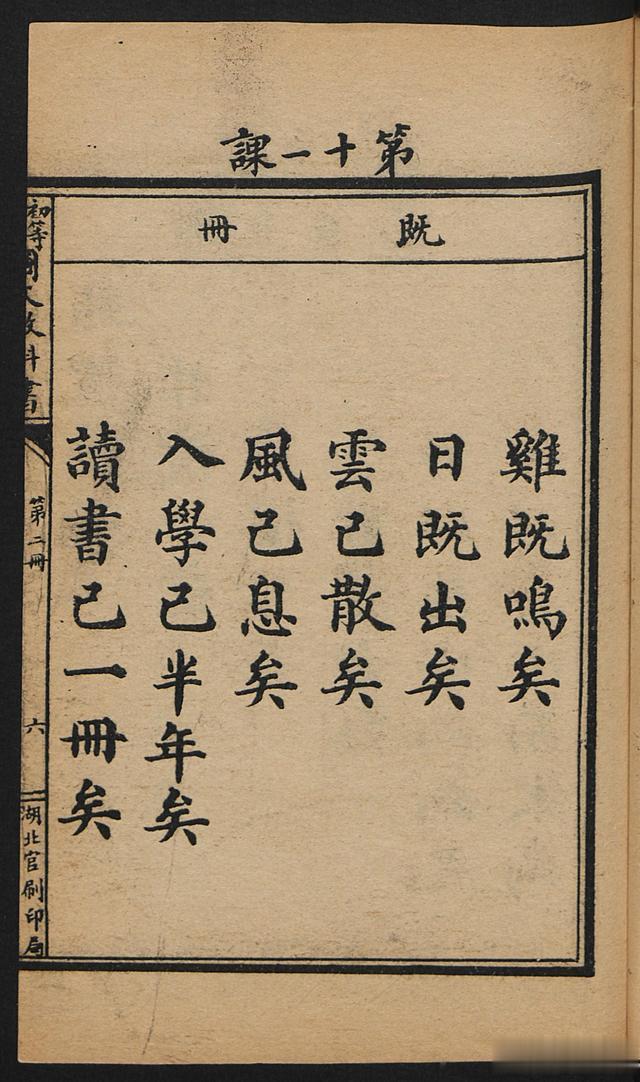 第十一課
既 冊
雞既鳴矣
日既出矣
雲已散矣
風已息矣
入學已半年矣
讀書已一冊矣
初等國文教科書
第二冊
六
湖北官刷印局